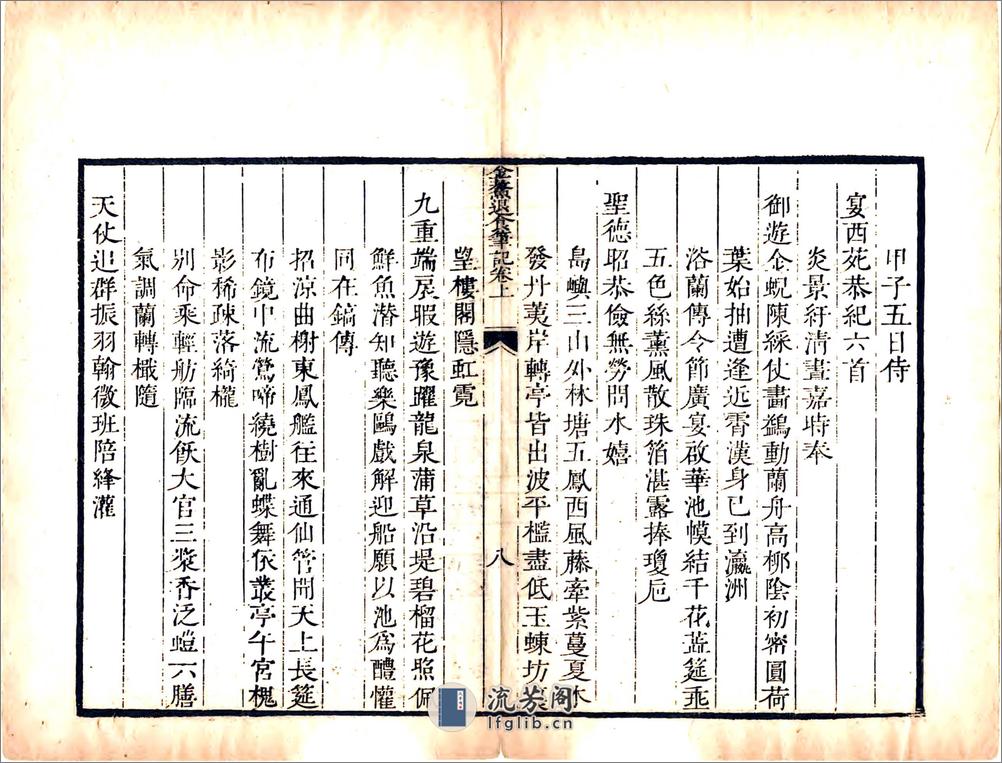 甲子五日侍
宴西苑恭紀六首
炎景紆清晝嘉時奉
御遊金蜺陳綵仗畫鷁動蘭舟高柳陰初密圓荷
葉始抽遭逢近霄漢身已到瀛洲
浴蘭傳令節廣宴啟華池幙結千花蓋筵垂
五色絲薰風散珠箔湛露捧瓊卮
聖德昭恭儉無勞問水嬉
島嶼三山外林塘五鳳西風藤牽紫蔓夏木
發丹荑岸轉亭皆出波平檻盡低玉蝀坊
金鰲退食筆記卷上
八
望樓閣隱虹霓
九重端扆暇遊豫躍龍泉蒲草沿堤碧榴花照佩
鮮魚潛知聽樂鷗戲解迎船願以池爲醴懽
同在鎬傳
招涼曲榭東鳳艦往來通仙管開天上長筵
布鏡中流鶯啼繞樹亂蝶舞依叢亭午宮槐
影稀疎落綺櫳
別命乘輕舫臨流飫大官三漿香泛螘六膳
氣調蘭轉檝隨
天仗迴群振羽翰微班陪絳灌
流芳阁
lfglib.cn